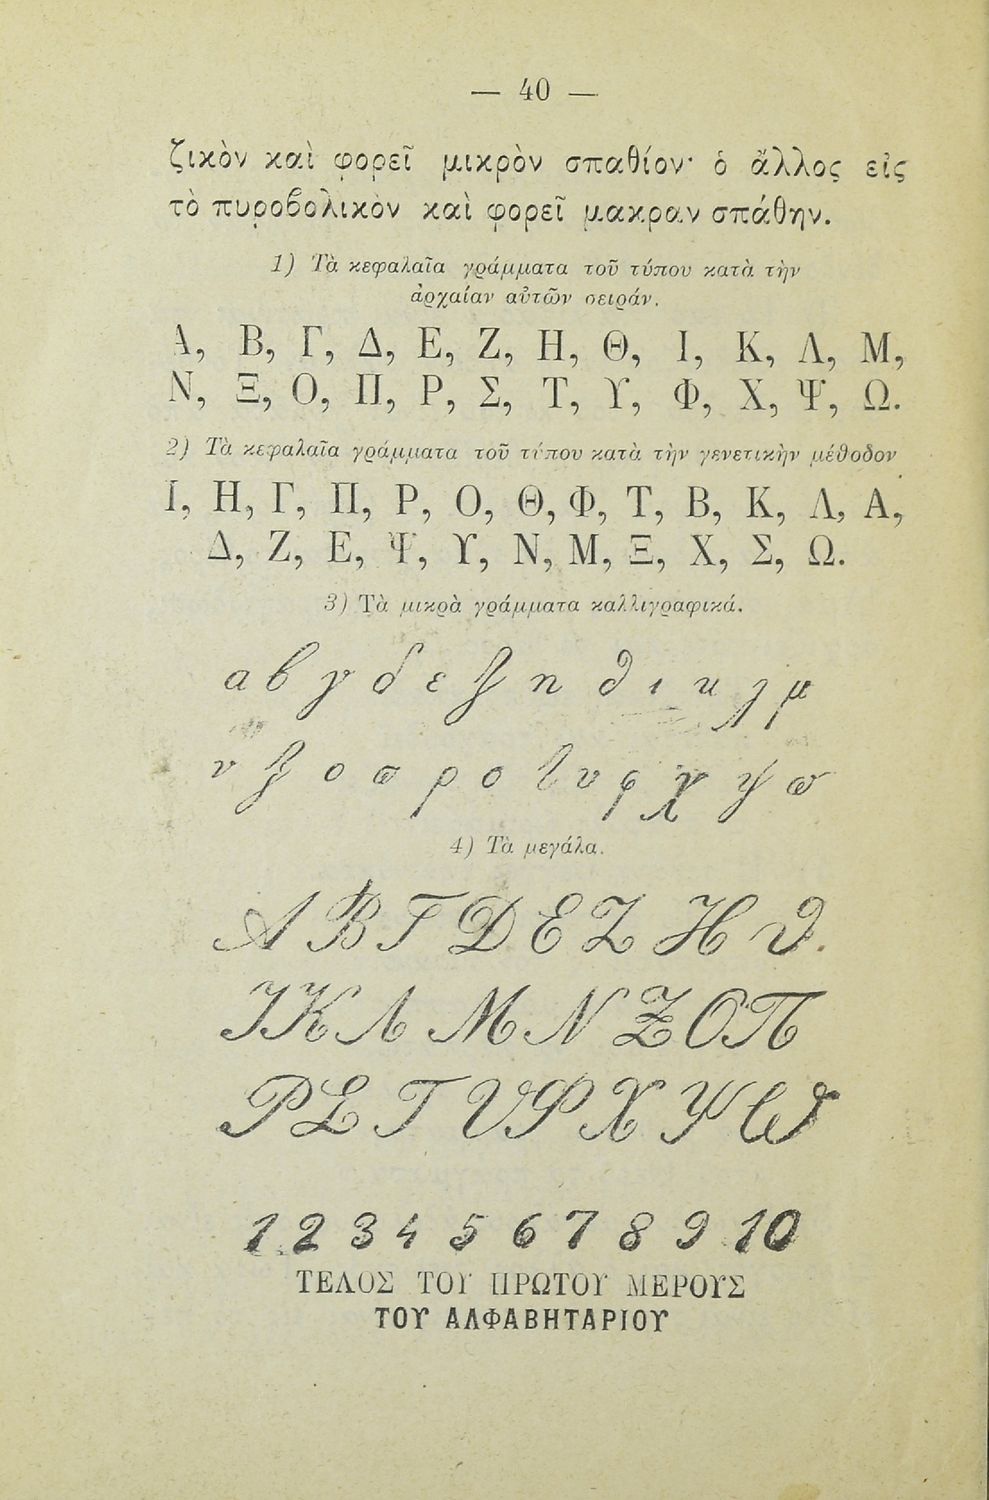 — 40 —
ζικὸν καὶ φορεῖ μικρὸν σπαθίον· ὁ ἄλλος εἰς
τὸ πυροβολικὸν καὶ φορεῖ μακραν σπάθην.
1) Τὰ κεφαλαῖα γράμματα τοῦ τύπου κατὰ τὴν
ἀρχαίαν αὐτῶν σειράν.
Α, Β, Γ, Δ, Ε, Ζ, Η, Θ, Ι, Κ, Λ, Μ,
Ν, Ξ, Ο, Π, Ρ, Σ, Τ, Υ, Φ, Χ, Ψ, Ω.
2) Τὰ κεφαλαῖα γράμματα τοῦ τύπου κατὰ τὴν γενετικὴν μέθοδον
Ι, Η, Γ, Π, Ρ, Ο, Θ, Φ, Τ, Β, Κ, Λ, Α,
Δ, Ζ, Ε, Ψ, Υ, Ν, Μ, Ξ, Χ, Σ, Ω.
3) Τὰ μικρὰ γράμματα καλλιγραφικά.
α β γ δ ε ζ η θ ι κ λ μ
ν ξ ο π ρ σ τ υ φ χ ψ ω
4) Τὰ μεγάλα.
Α Β Γ Δ Ε Ζ Η Θ.
Ι Κ Λ Μ Ν Ξ Ο Π
Ρ Σ Τ Υ Φ Χ Ψ Ω
1 2 3 4 5 6 7 8 9 10
ΤΕΛΟΣ ΤΟΥ ΠΡΩΤΟΥ ΜΕΡΟΥΣ
ΤΟΥ ΑΛΦΑΒΗΤΑΡΙΟΥ